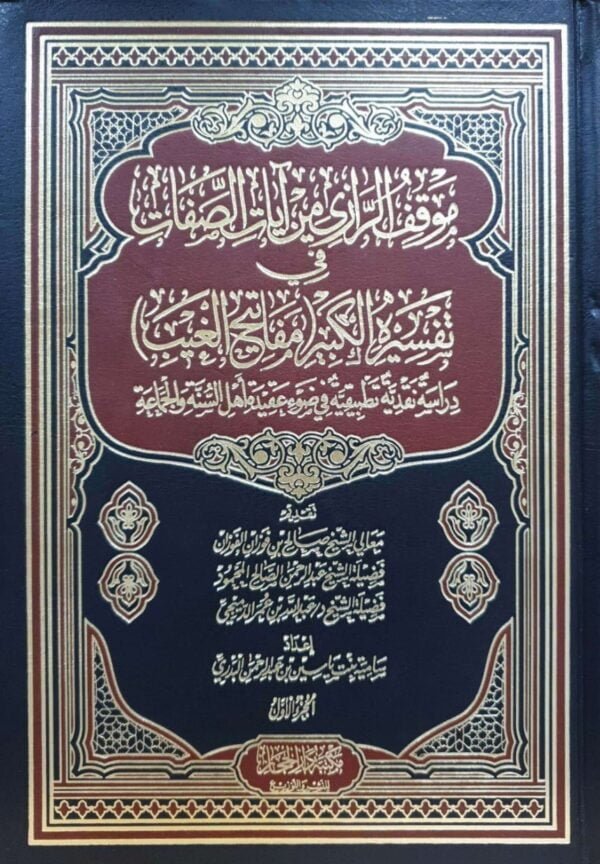 موقف الرازي من آيات الصفات
في
تفسيره الكبير (مفاتيح الغيب)
دراسة نقدية تطبيقية في ضوء عقيدة أهل السنة والجماعة
تقديم
معالي الشيخ صالح بن فوزان الفوزان
فضيلة الشيخ عبد الرحمن الصالح المحمود
فضيلة الشيخ د. عبد الله بن عمر الدميجي
إعداد
سامية بنت ياسين بن عبد الرحمن البدري
الجزء الأول
مكتبة دار الحجاز
للنشر والتوزيع